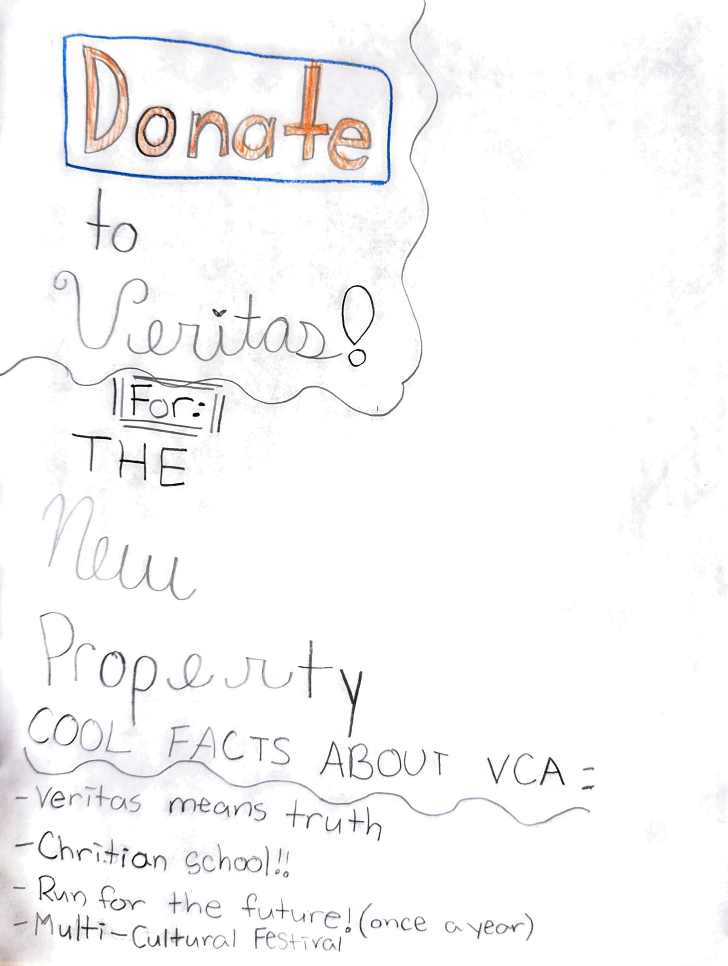 Donate
to
Veritas!
For:
THE
New
Property
COOL FACTS ABOUT VCA:
-Veritas means truth
-Chritian school!!
- Run for the future! (once a year)
- Multi-Cultural Festival